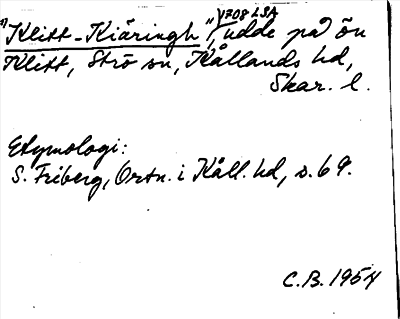 "Klitt-Kiäringh", 1708 LSA udde på ön
Klitt, Strö sn, Kållands hd,
Skar. l.
Etymologi:
S. Friberg, Ortn. i Kåll. hd, s. 69.
C.B. 1954